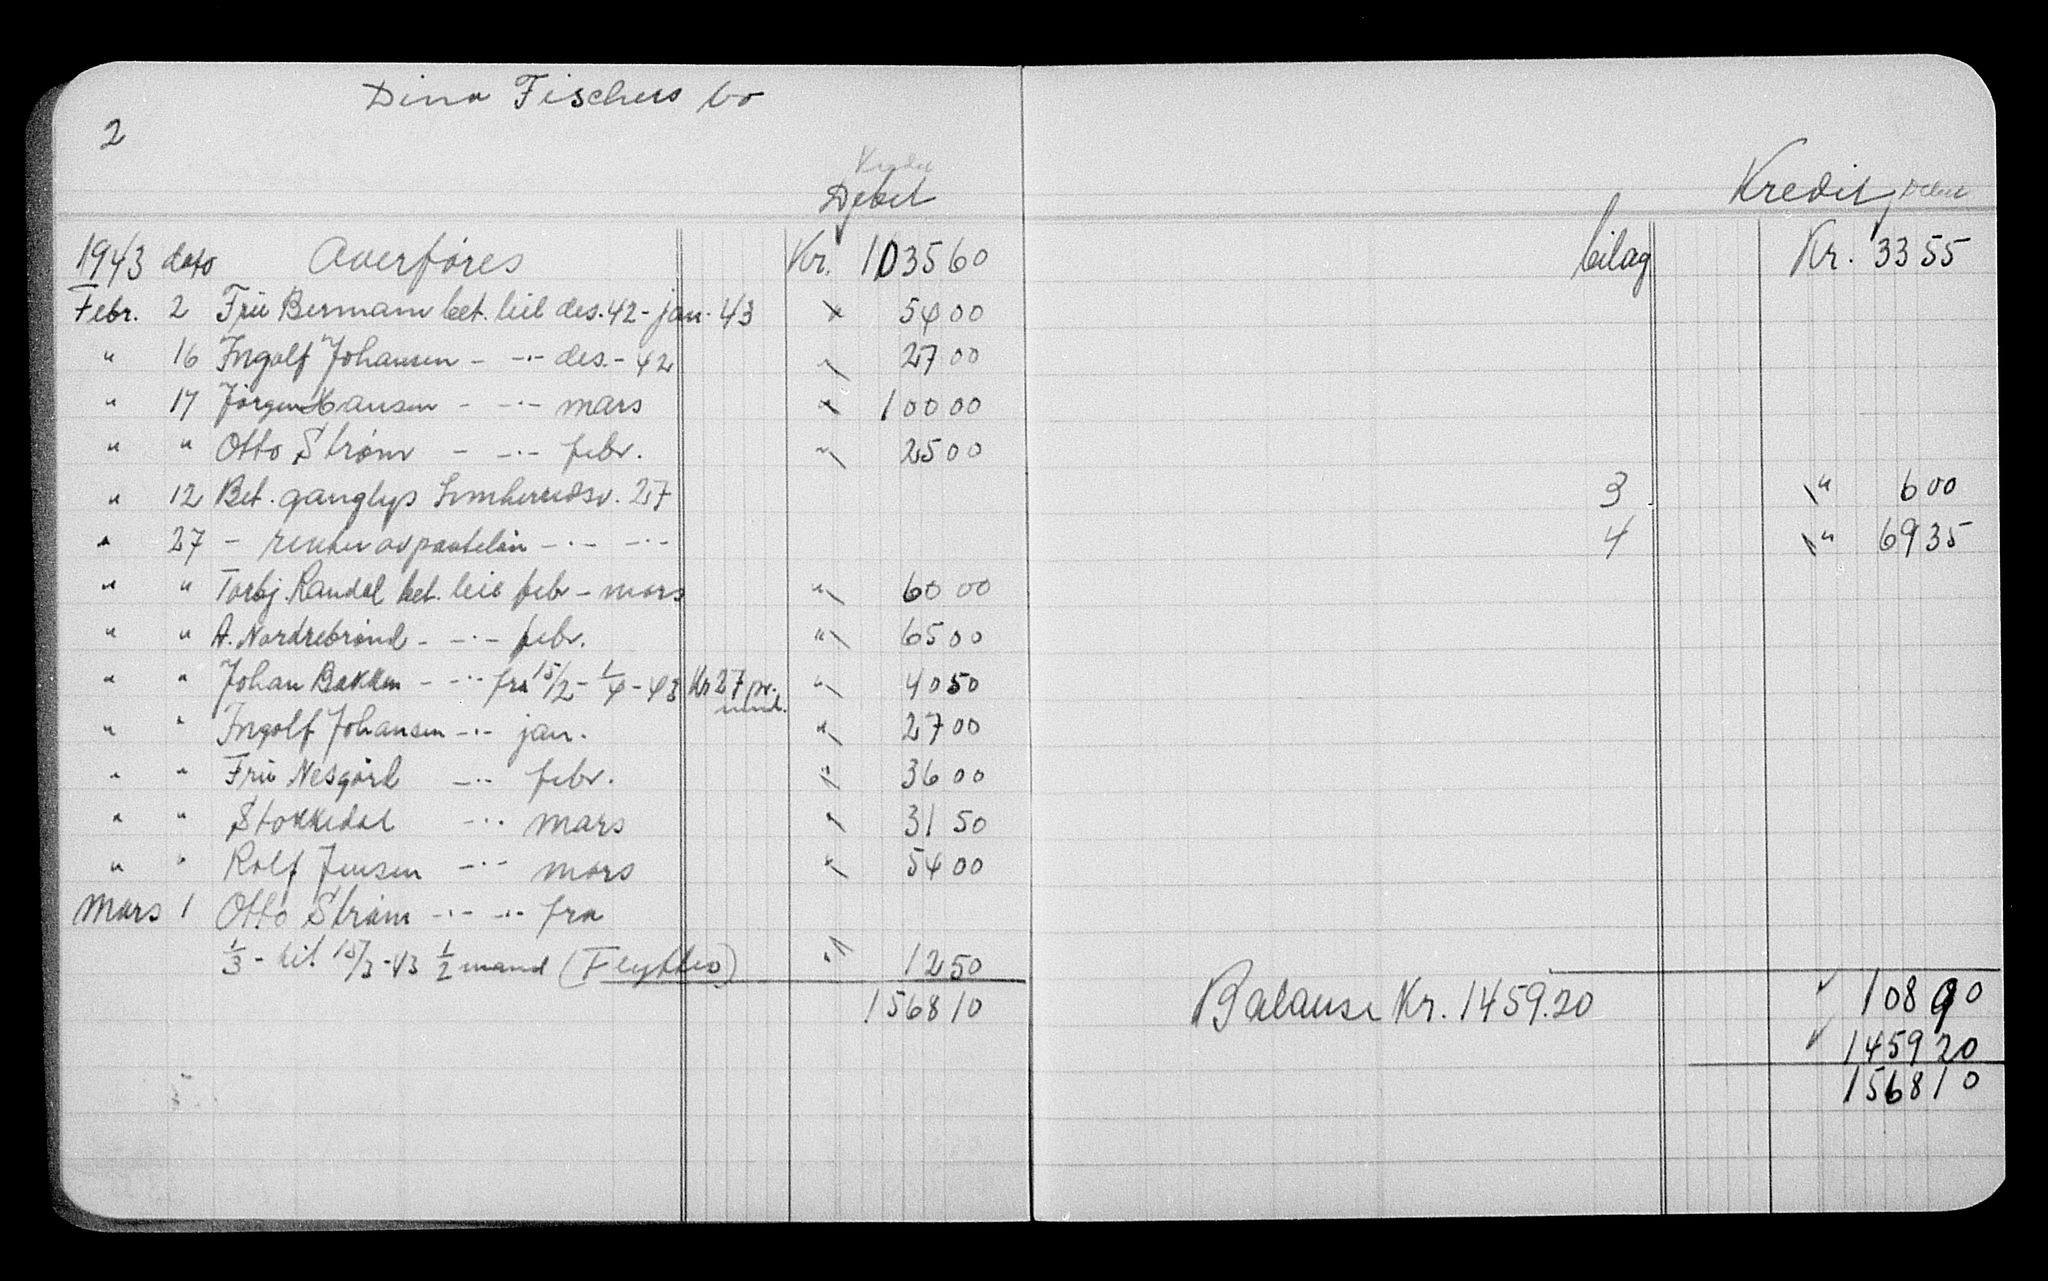 Dina Fischers bo
2
Kredit
Debet
Kredit, Debet
1943 dato Overføres Kr. 1035 60 bilag Kr. 33 55
Febr. 2 Fru Bermann bet. leie des. 42 - jan. 43 " 54 00
" 16 Ingolf Johansen - -"- des. - 42 " 27 00
" 17 Jørgen Hansen - -"- mars " 100 00
" " Otto Strøm - -"- febr. " 25 00
" 12 Bet. ganglys 27 3 " 6 00
" 27 - renter av pantelån -"- -"- 4 " 69 35
" " Torbj. Randal bet. leie febr - mars " 60 00
" " A. Nordrebrønd - -"- febr. " 65 00
" " Johan Bakken - -"- fra 15/2 - 1/4 - 43 Kr 27 pr. mnd. " 40 50
" " Ingolf Johansen -"- jan. " 27 00
" " Fru Nesgård -"- febr. " 36 00
" " Stokkedal -"- mars " 31 50
" " Rolf Jensen -"- mars " 54 00
Mars 1 Otto Strøm -"- -"- fra
1/3 - til 15/3 - 43 1/2 mand (Flyttes) " 12 50
1568 10 Balanse Kr. 1459.20 108 90
1459 20
1568 10